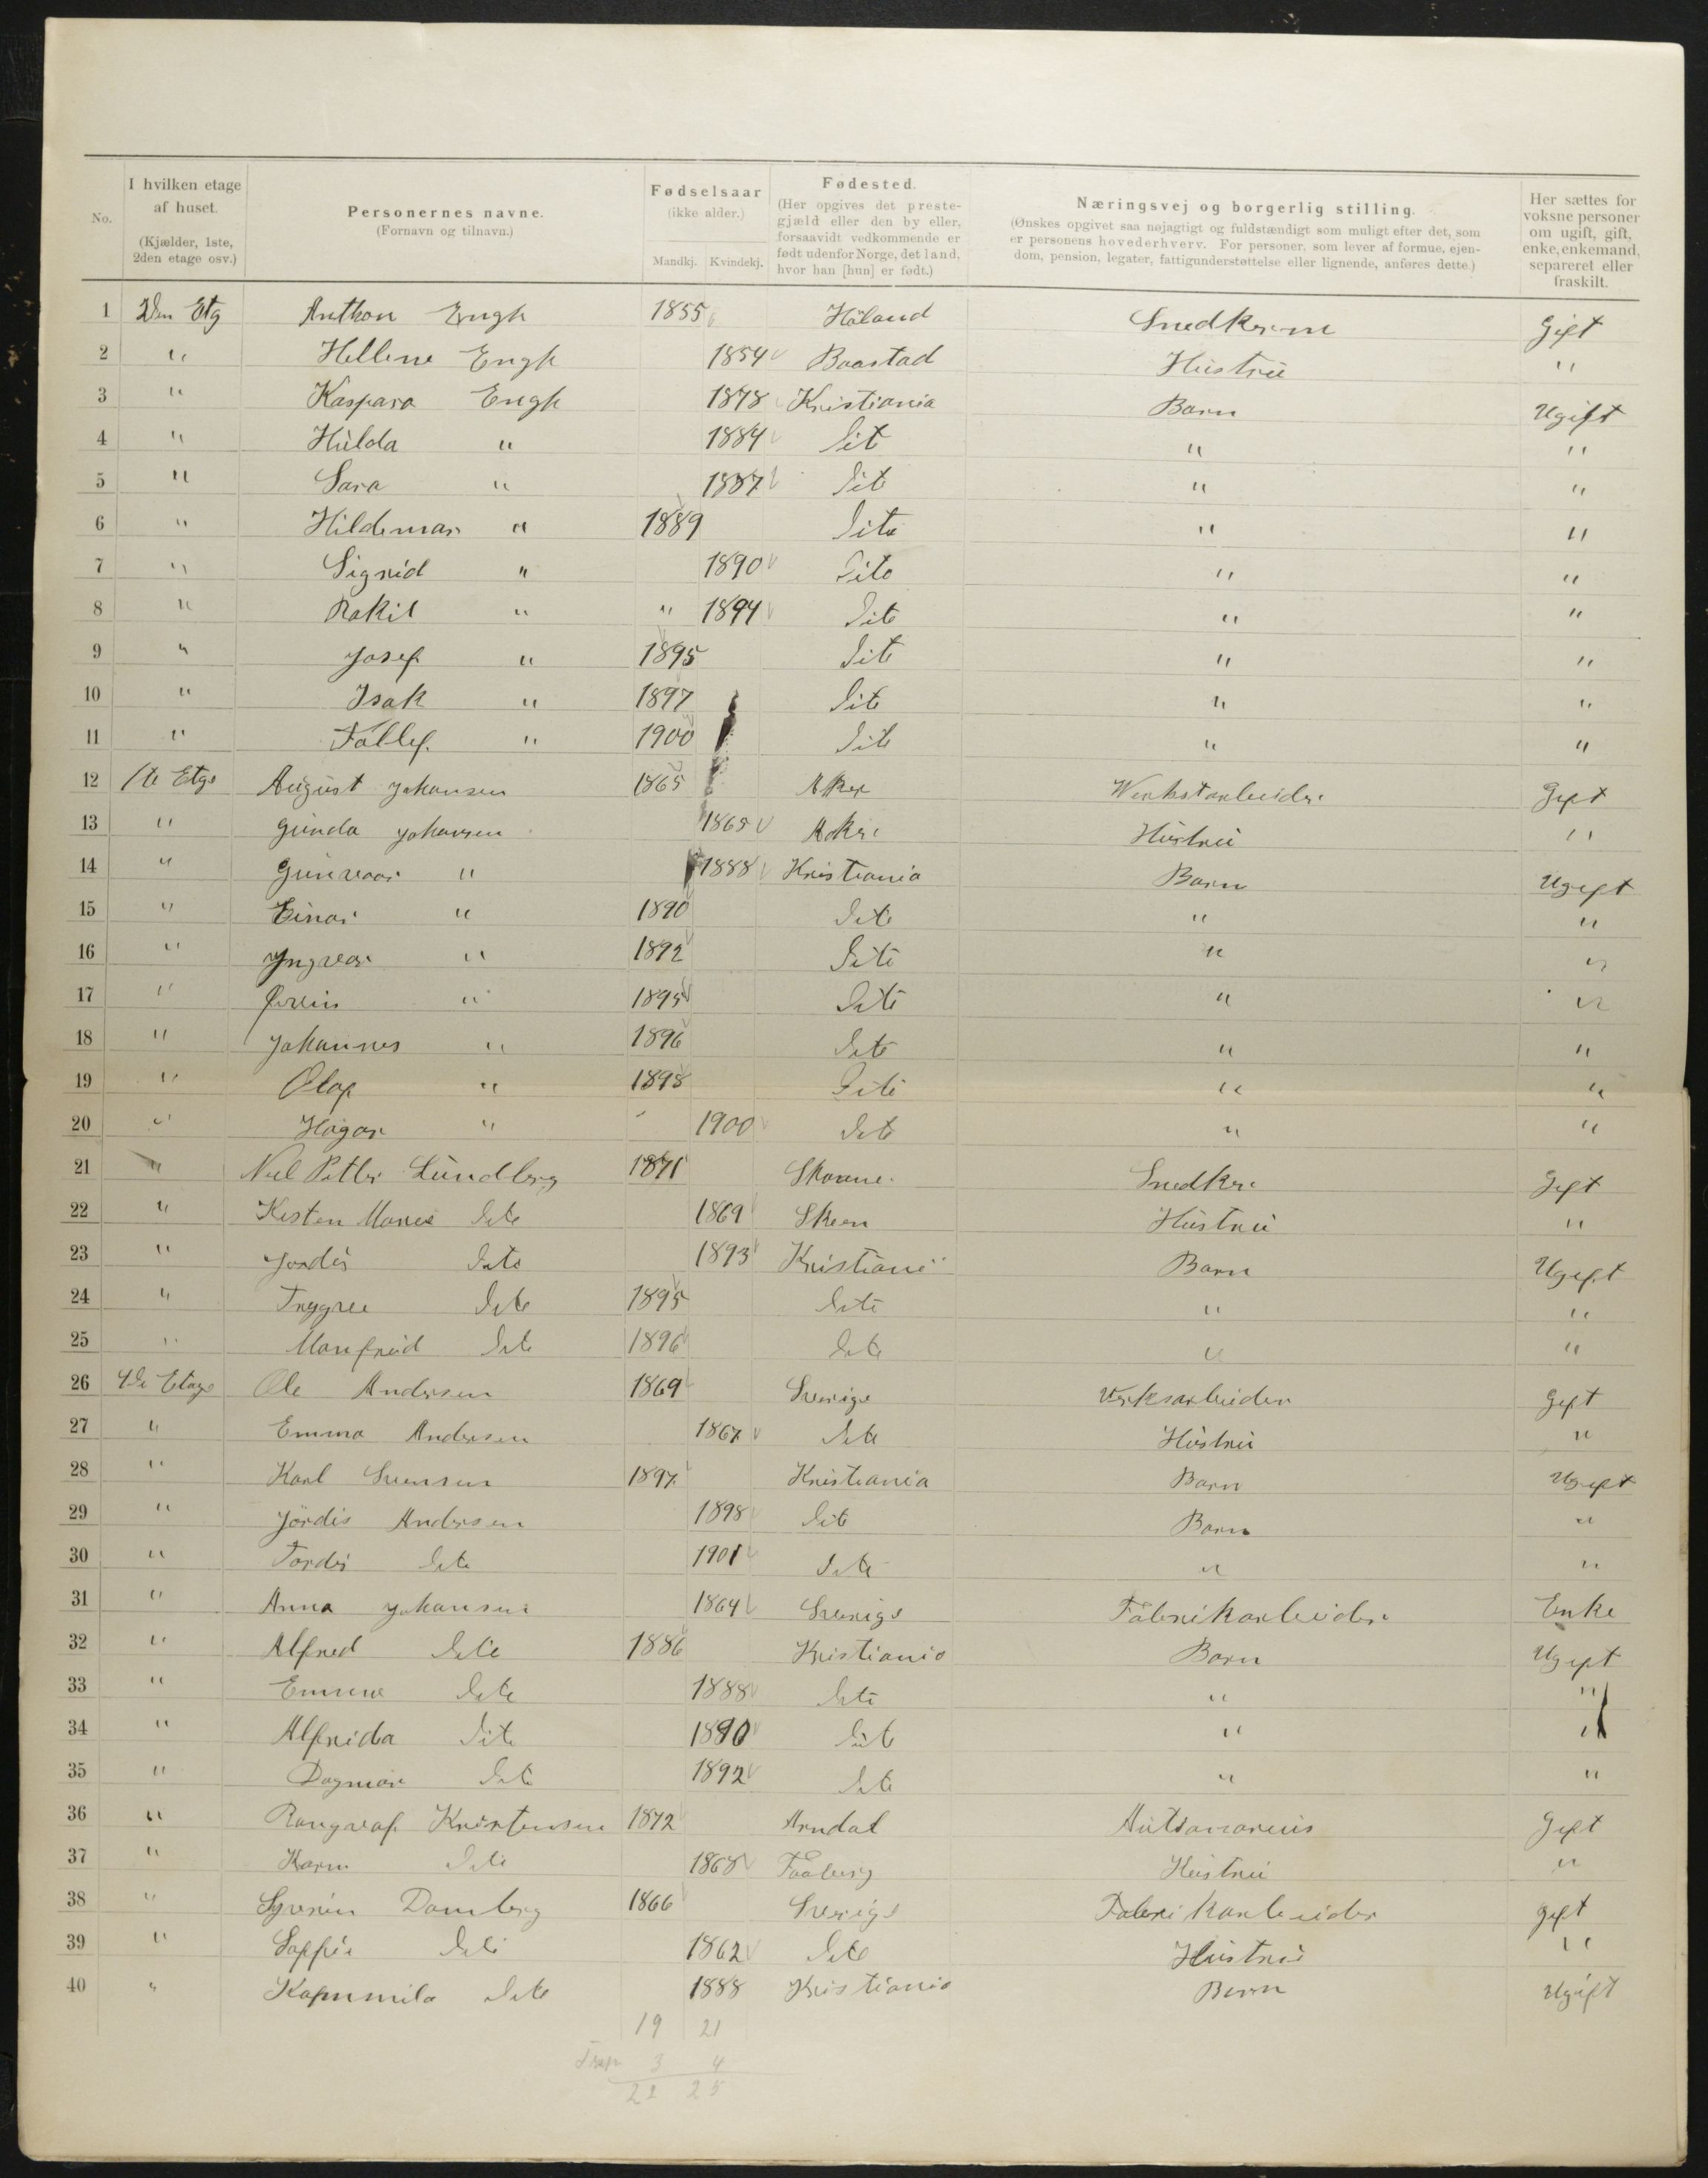 No.
I hvilken etage af huset. (Kjælder, 1ste, 2den etage osv.)
Personernes navne. (Fornavn og tilnavn.)
Fødselsaar (ikke alder.) Mandkj. Kvindekj.
Fødested. (Her opgives det prestegjæld eller den by eller, forsaavidt vedkommende er født udenfor Norge, det land, hvor han [hun] er født.)
Næringsvej og borgerlig stilling. (Ønskes opgivet saa nøjagtigt og fuldstændigt som muligt efter det, som er personens hovederhverv. For personer, som lever af formue, ejendom, pension, legater, fattigunderstøttelse eller lignende, anføres dette.)
Her sættes for voksne personer om ugift, gift, enke, enkemand, separeret eller fraskilt.
1 2den Etg Anthon Engh 1855 Höland Gift
2 " Hellene Engh 1854 Baastad Hüstrü "
3 " Kaspara Engh 1878 Kristiania Barn Ugift
4 " Hülda " 1884 Dit " "
5 " Sara " 1887 Dit " "
6 " Hildemar " 1889 Dito " "
7 " Sigrid " 1890 Dito " "
8 " Rakil " " 1894 Dito " "
9 " Josef " 1895 Dit " "
10 " Isak " 1897 Dito " "
11 " " 1900 Dito " "
12 1te Etge August Johansen 1865 Aker Gift
13 " Günda Johansen 1865 Aker Hüstrü "
14 " Günvaar " 1888 Kristiania Barn Ugift
15 " Einar " 1890 Dito " "
16 " Yngvar " 1892 Dito " "
17 " " 1895 Dito " "
18 " Johannes " 1896 Dito " "
19 " Olaf " 1898 Dito " "
20 " Hagar " 1900 Dito " "
21 " Lündberg 1871 Skaane Snedker Gift
22 " Marie Dito 1869 Skeen Hüstrü "
23 " Dito 1893 Kristiani Barn Ugift
24 " Tryggve Dito 1895 Dito " "
25 " Manfred Dito 1896 Dito " "
26 4de Etage Ole Andersen 1869 Sverige Verksarbeider Gift
27 " Emma Andersen 1867 Dito Hüstrü "
28 " Karl Svensen 1897 Kristiania Barn Ugift
29 " Jördis Andersen 1898 Dito Barn "
30 " Tordis Dito 1901 Dito " "
31 " Anna Johansen 1864 Sverige Fabrikarbeider Enke
32 " Alfred Dito 1886 Kristiania Barn Ugift
33 " Dito 1888 Dito " "
34 " Alfrida Dito 1890 Dito " "
35 " Dagmar Dito 1892 Dito " "
36 " Kristensen 1872 Arndal Gift
37 " Karn Dito 1868 Faaberg Hüstrü "
38 " Damberg 1866 Sverige Fabrikarbeider gift
39 " Soffie Dito 1862 Dito Hüstrü "
40 " Dito 1888 Kristiania Barn Ugift
19 21
3 4
22 25